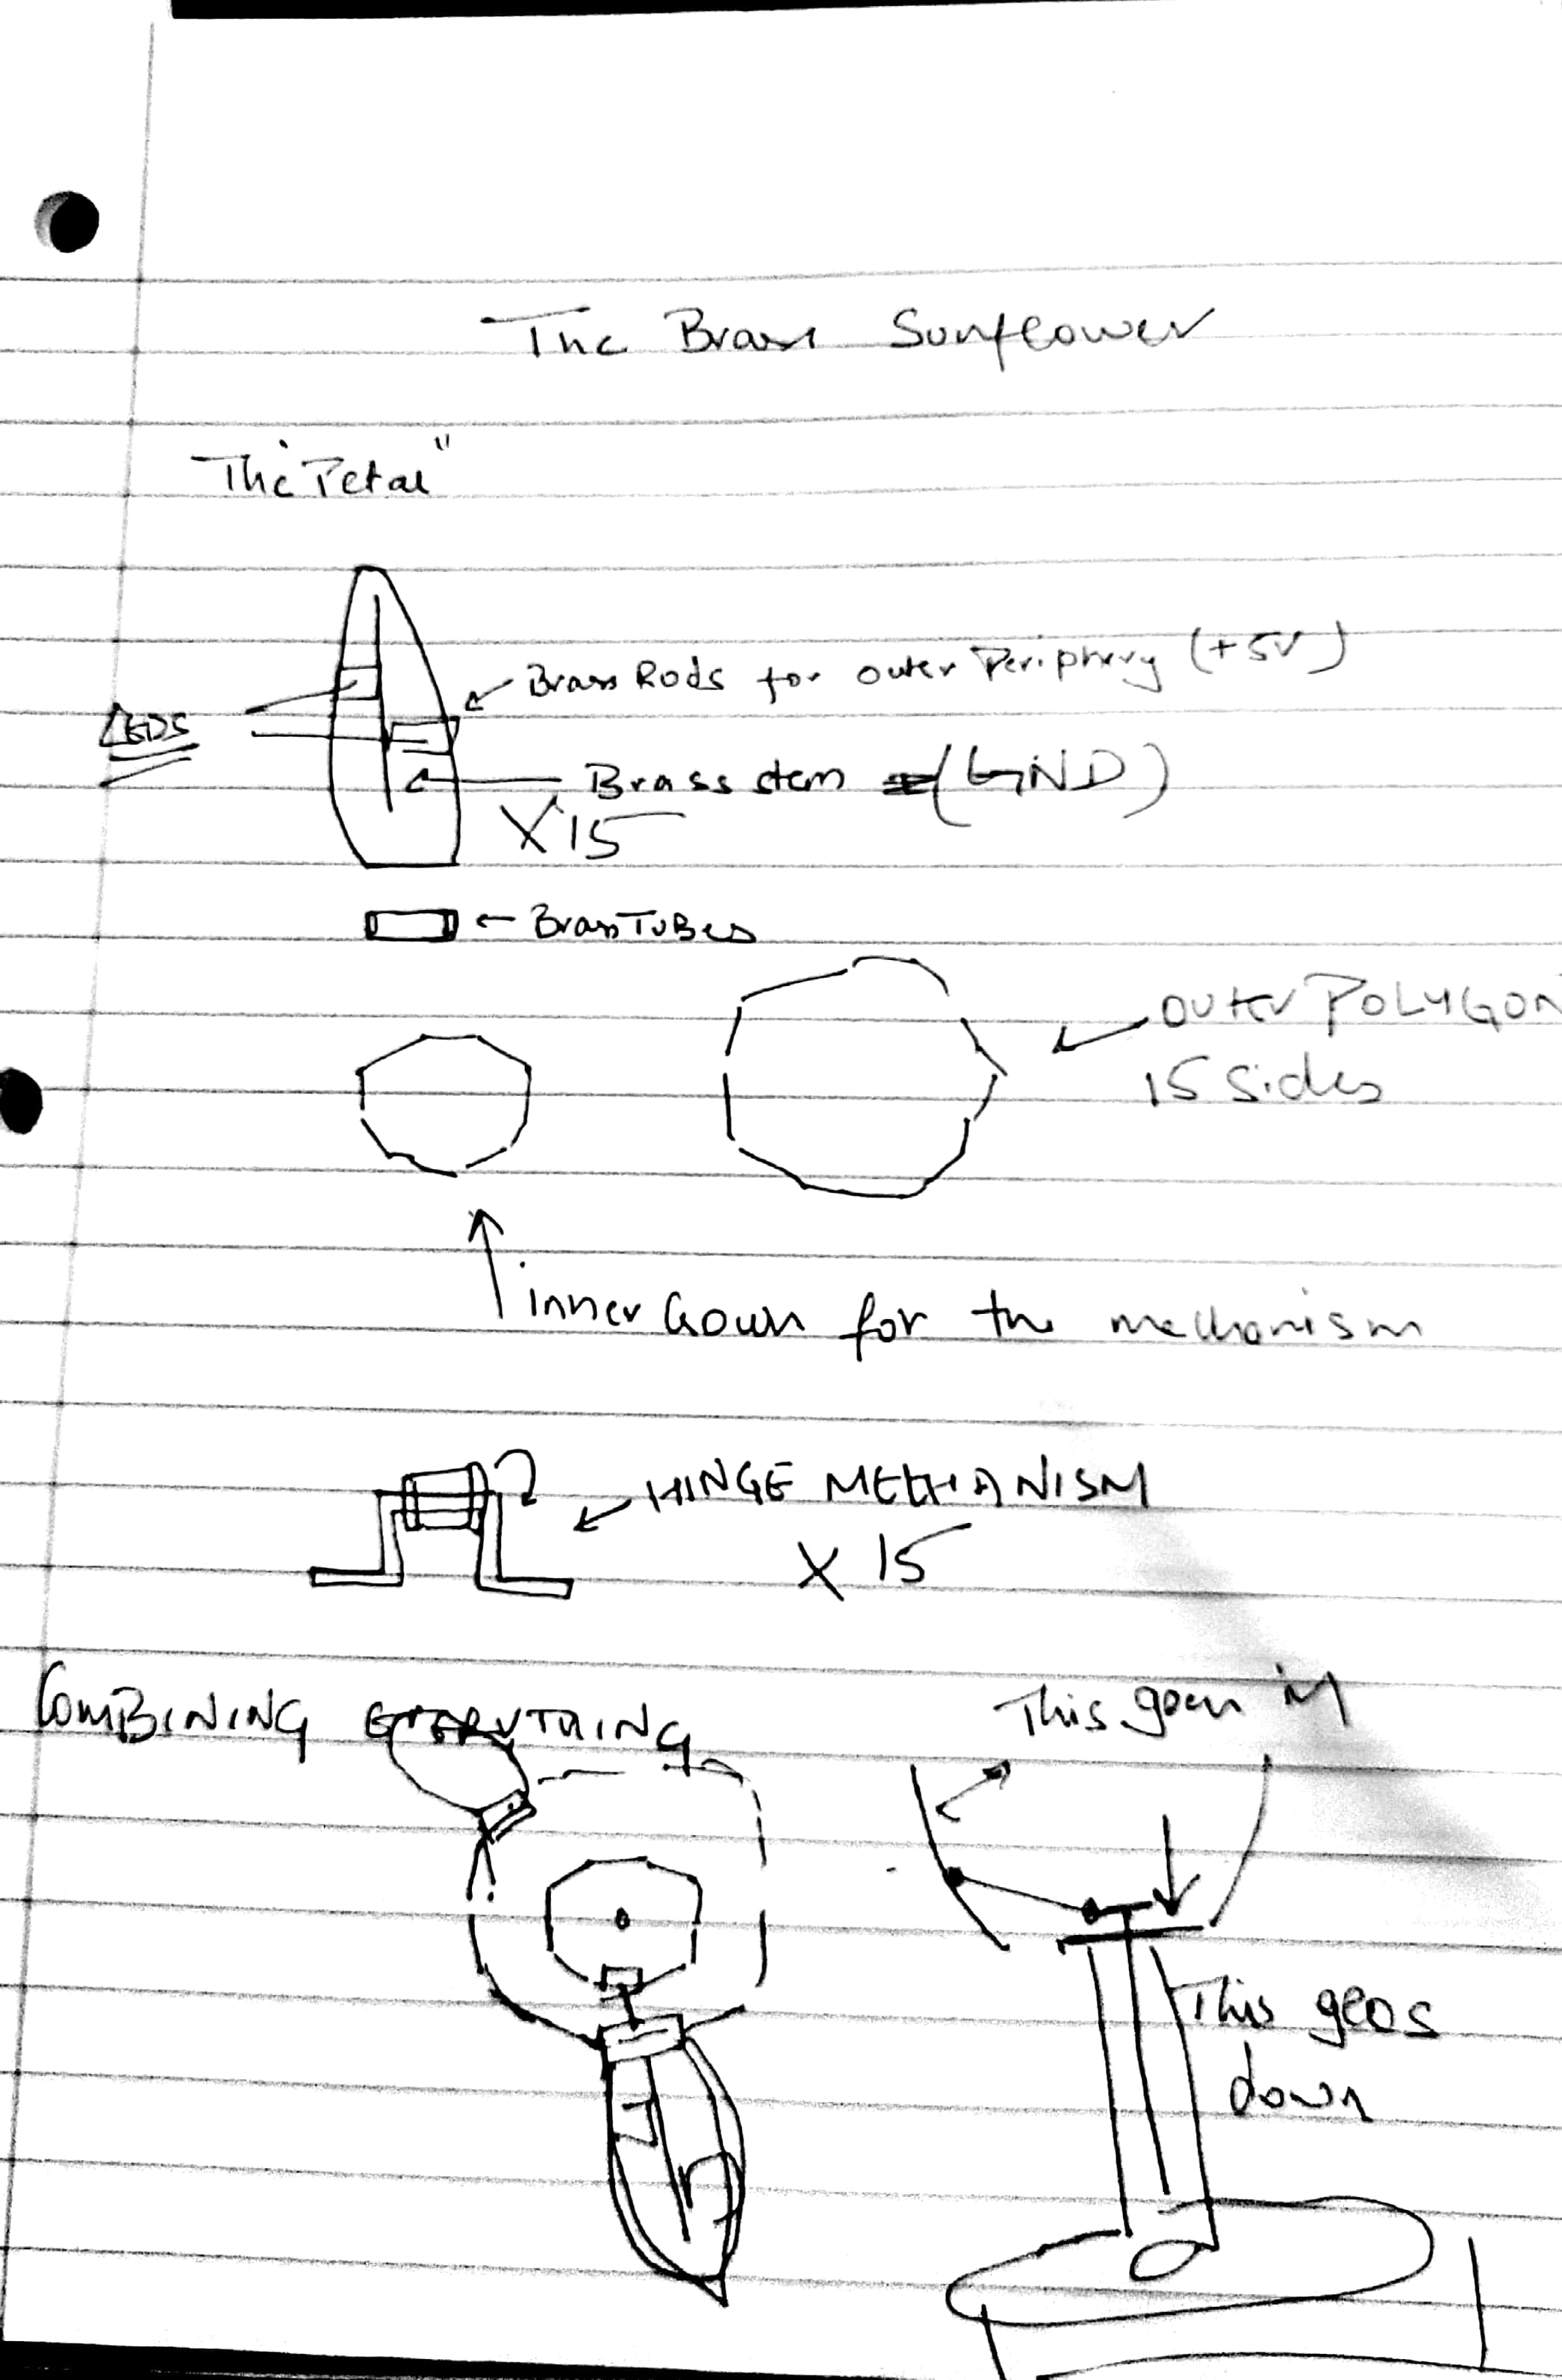 The Brass Sunflower
The "Petal"
Brass Rods for outer Periphery (+5V)
LEDS
Brass stem (GND)
X 15
Brass TUBes
OUTER POLYGON
15 Sides
inner for the mechanism
HINGE MECHANISM
X 15
COMBINING EVERYTHING
This goes in
This goes
down